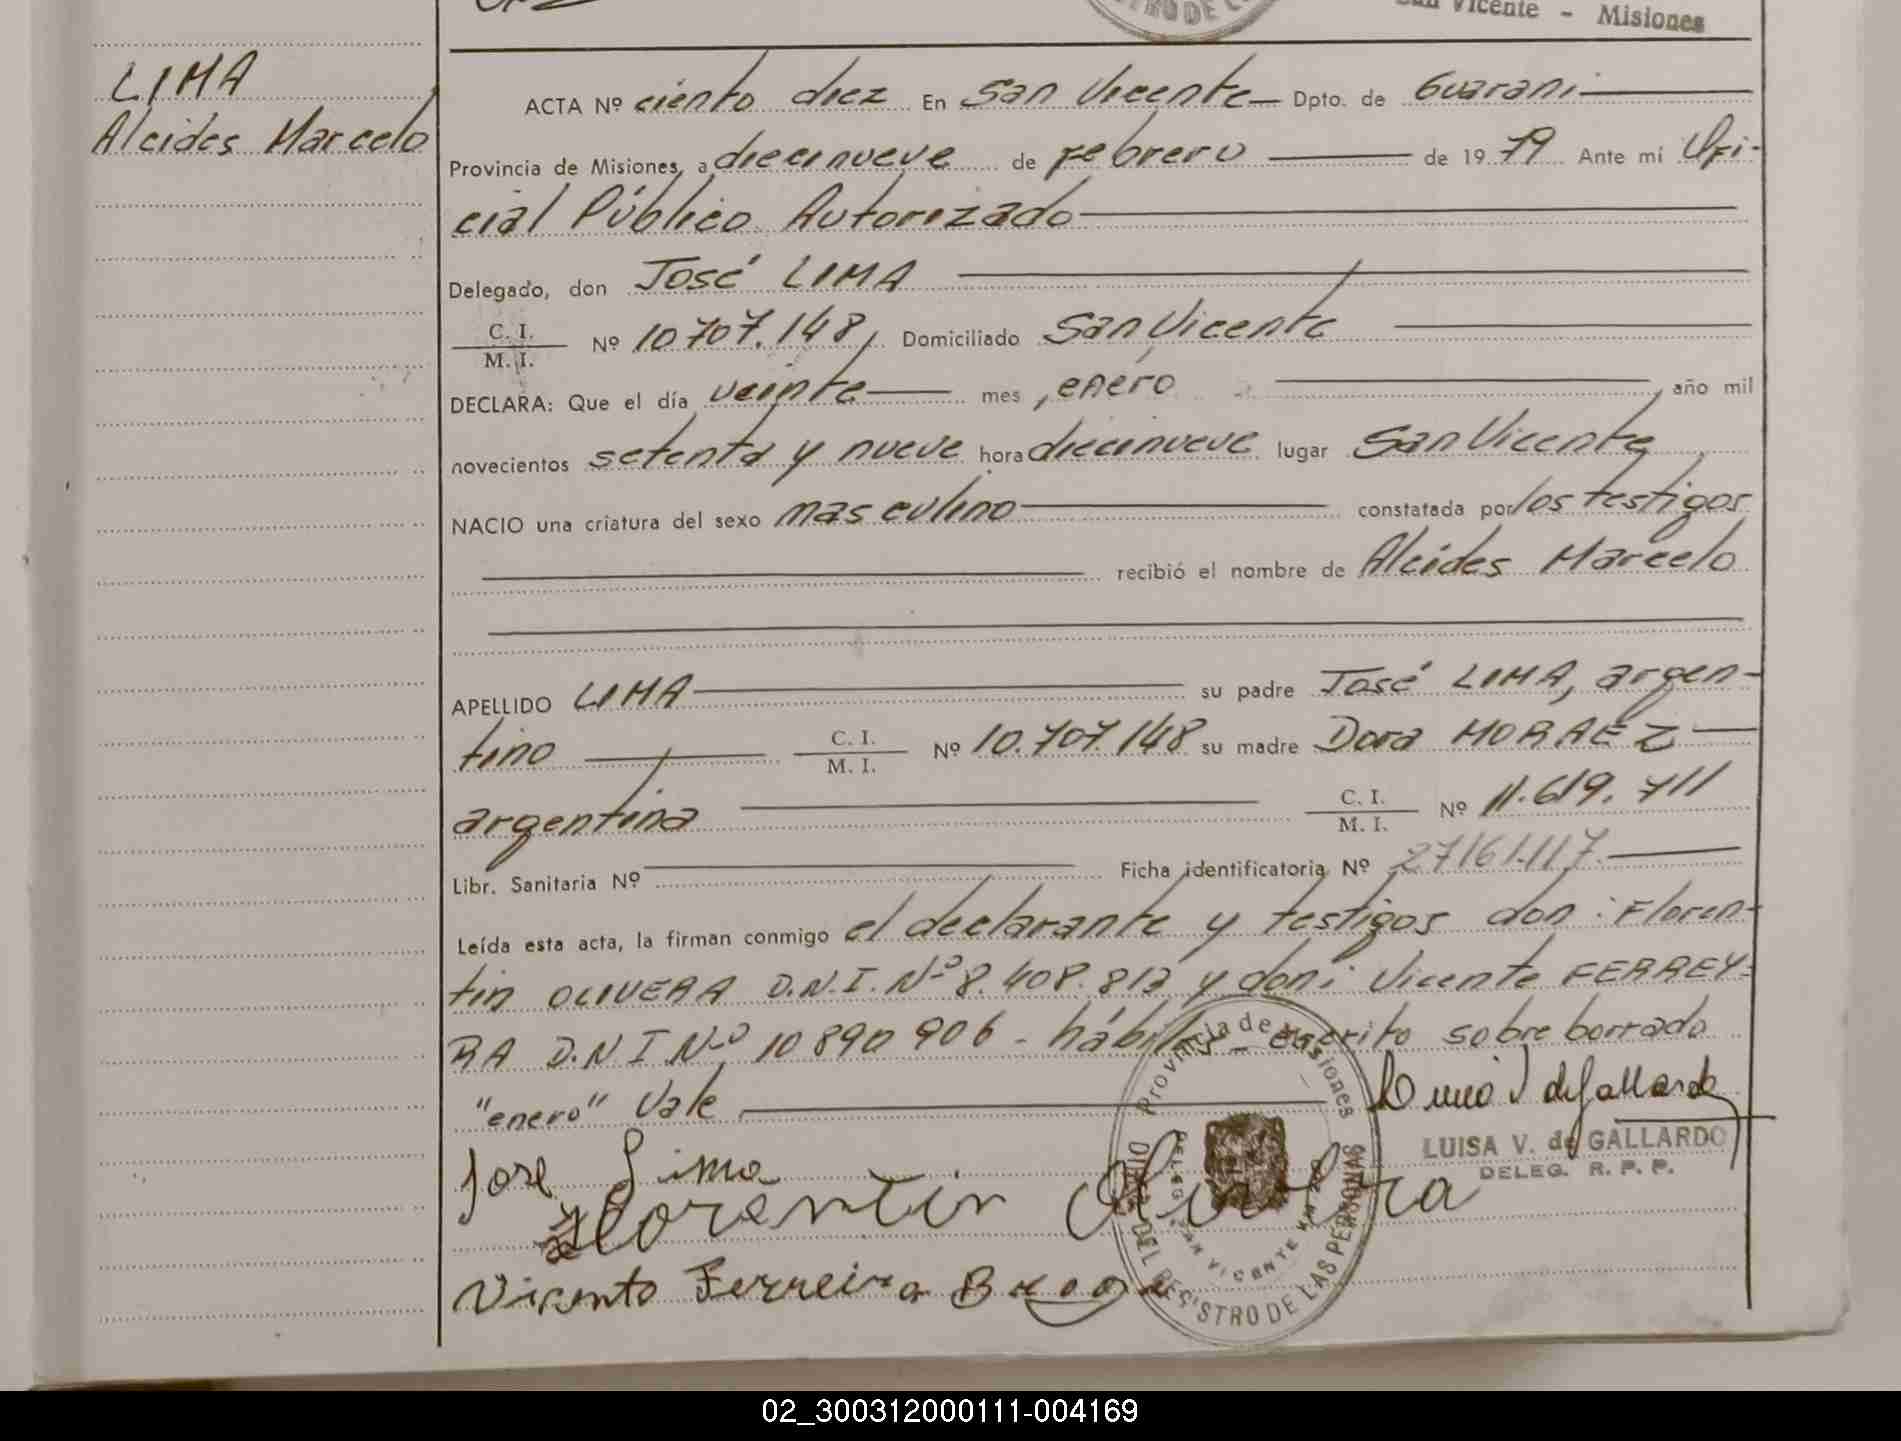 San Vicente - Misiones
LIMA
Alcides Marcelo
ACTA Nº ciento diez En San Vicente Dpto. de Guaraní
Provincia de Misiones, a diecinueve de Febrero de 1979 Ante mí Ofi-
cial Público Autorizado
Delegado, don José LIMA
C. I.
M. I.
Nº 10.707.148, Domiciliado San Vicente
DECLARA: Que el día veinte mes enero año mil
novecientos setenta y nueve hora diecinueve lugar San Vicente
NACIO una criatura del sexo masculino constatada por los testigos
recibió el nombre de Alcides Marcelo
APELLIDO LIMA su padre José LIMA, argen-
tino C. I. M. I. Nº 10.707.148 su madre Dora MORAEZ
argentina C. I. M. I. Nº 11.619.711
Libr. Sanitaria Nº Ficha identificatoria Nº 27161.117
Leída esta acta, la firman conmigo el declarante y testigos don: Floren-
tin OLIVERA D.N.I. Nº 8.408.812 y don: Vicente FERREY-
RA D.N.I Nº 10890906 - hábiles - escrito sobre borrado
"enero" Vale
LUISA V. de GALLARDO
DELEG. R. P. P.
Jose Lima
Florentin Olivera
Vicente Ferreira
Provincia de Misiones
DEL REGISTRO DE LAS PERSONAS
SAN VICENTE
02_300312000111-004169